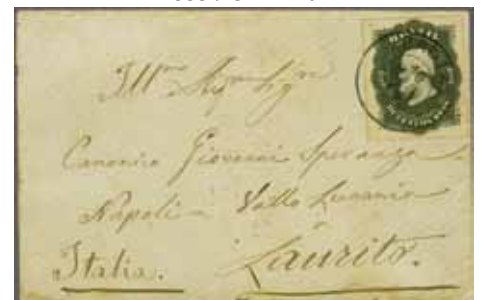 BRASIL
Ill.mo Sig.re Sig.re
Canonico Giovanni Speranza
Napoli - Vallo Lucania
Italia. Laurito.